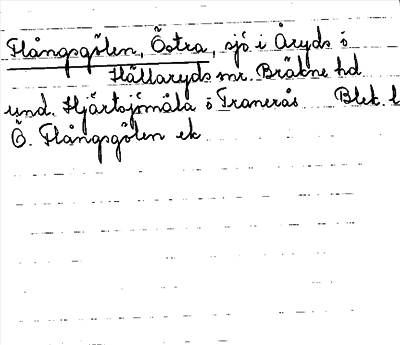 Flångsgölen, Östra, sjö i Åryds o
Hällaryds snr. Bräkne hd
und. Hjärtsjömåla o Tranerås Blek. l
Ö. Flångsgölen ek